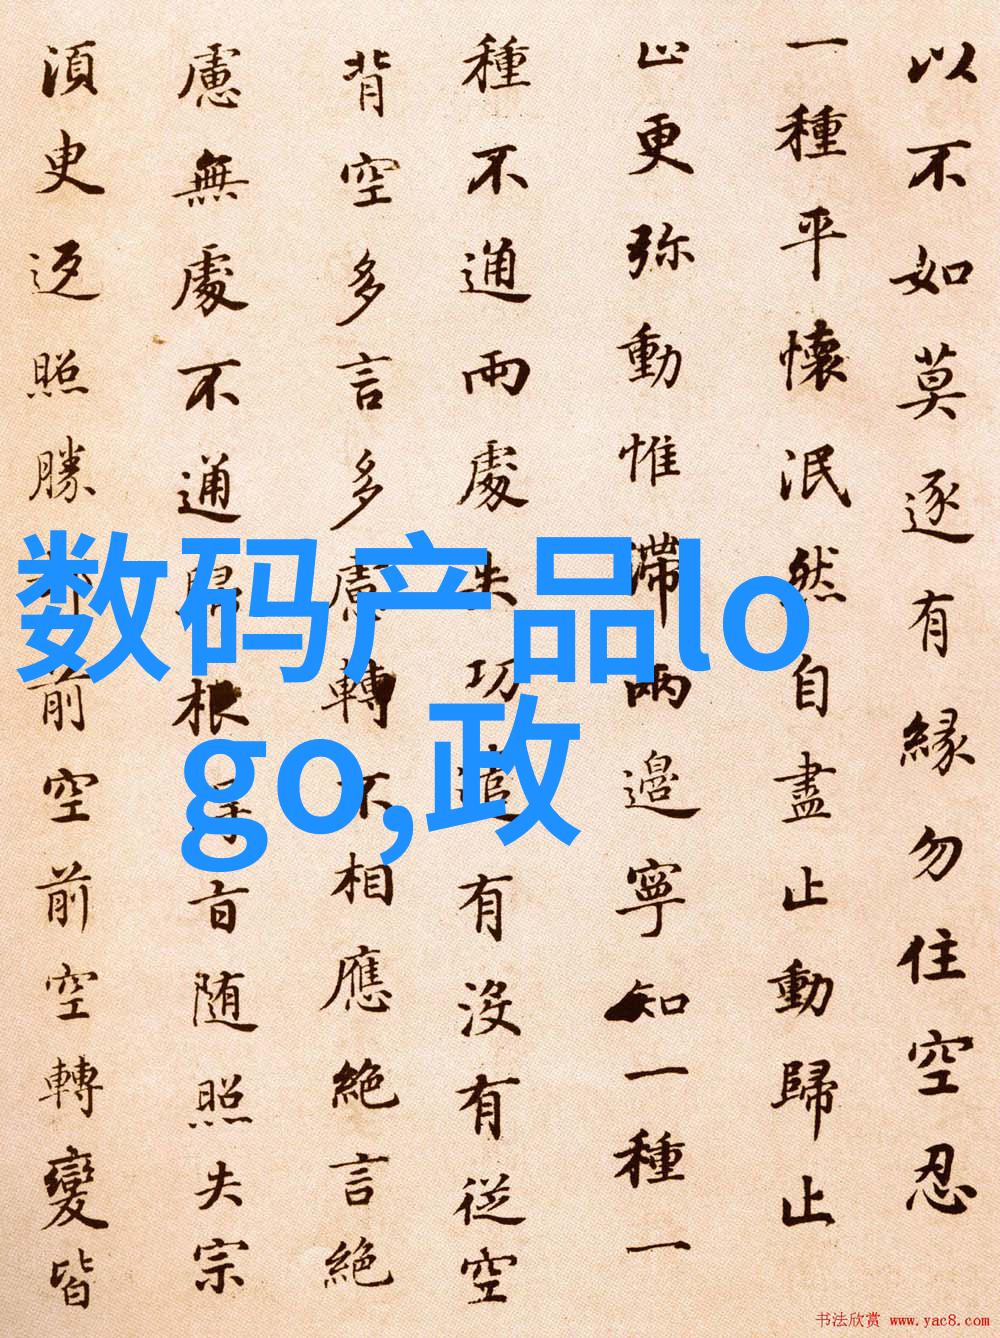 以不如莫逐有緣勿住空忍
一種平懷泯然自盡止動歸止
止更弥動惟滯兩邉寧知一種一
種不通兩處失功遣有沒有從空
背空多言多慮轉不相應絶言絶
慮無處不通歸根得旨随照失宗
須臾返照勝却前空前空轉變皆
数码产品lo
go,政
书法欣赏 www.yac8.com